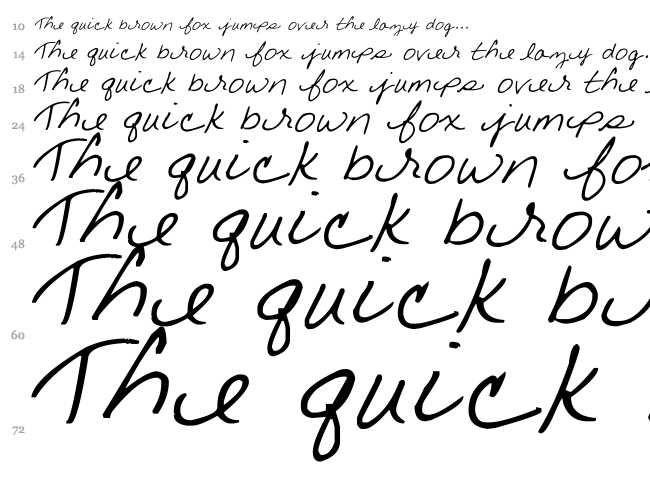 10 The quick brown fox jumps over the lazy dog...
14 The quick brown fox jumps over the lazy dog.
18 The quick brown fox jumps over the
24 The quick brown fox jumps
36 The quick brown fo
48 The quick brow
60 The quick br
72 The quick